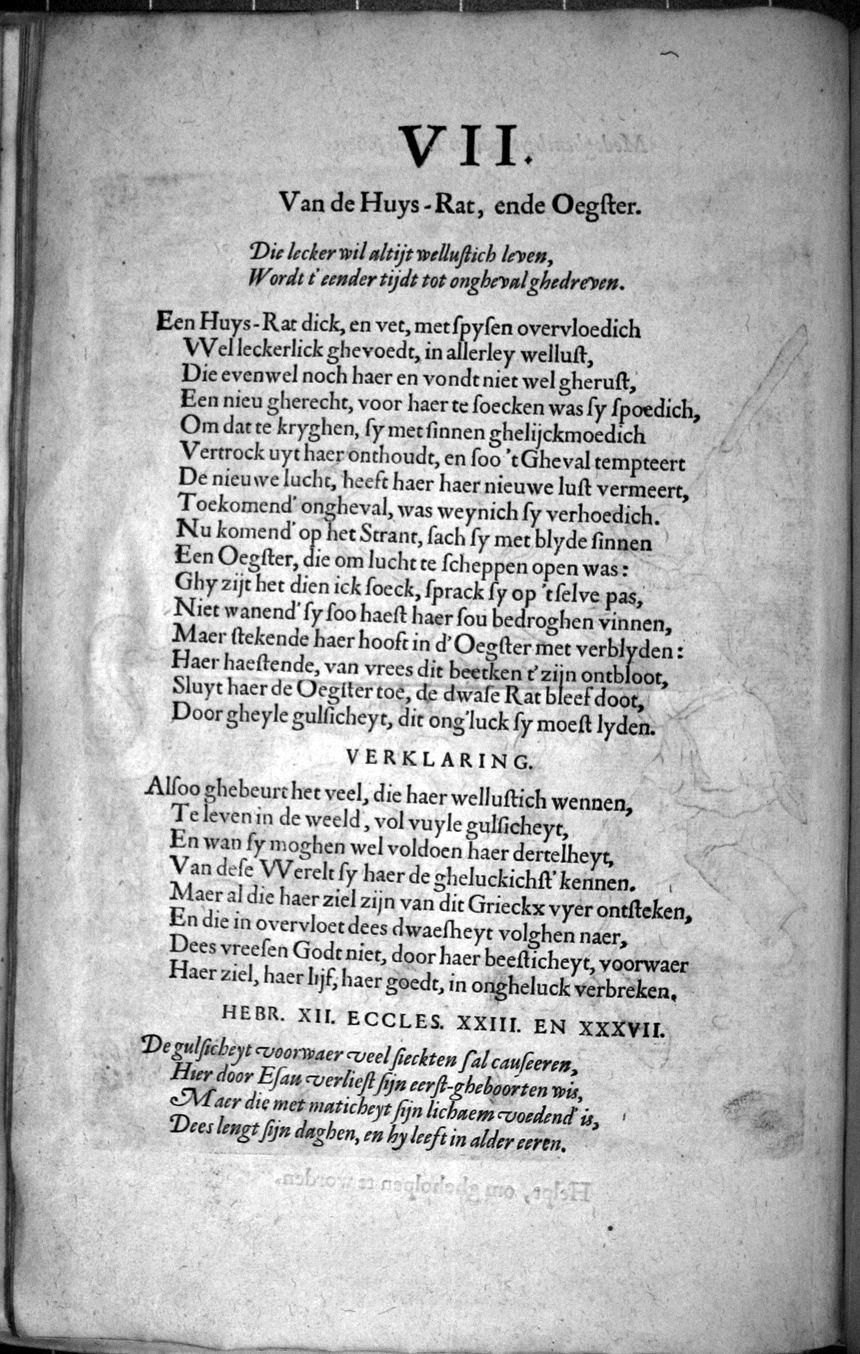 VII.
Van de Huys-Rat, ende Oegſter.
Die lecker wil altijt welluſtich leven,
Wordt t'eender tijdt tot ongheval ghedreven.
Een Huys-Rat dick, en vet, met ſpyſen overvloedich
Wel leckerlick ghevoedt, in allerley welluſt,
Die evenwel noch haer en vondt niet wel gheruſt,
Een nieu gherecht, voor haer te ſoecken was ſy ſpoedich,
Om dat te kryghen, ſy met ſinnen ghelijckmoedich
Vertrock uyt haer onthoudt, en ſoo 't Gheval tempteert
De nieuwe lucht, heeft haer haer nieuwe luſt vermeert,
Toekomend' ongheval, was weynich ſy verhoedich.
Nu komend' op het Strant, ſach ſy met blyde ſinnen
Een Oegſter, die om lucht te ſcheppen open was:
Ghy zijt het dien ick ſoeck, ſprack ſy op 'tſelve pas,
Niet wanend' ſy ſoo haeſt haer ſou bedroghen vinnen,
Maer ſtekende haer hooft in d'Oegſter met verblyden:
Haer haeſtende, van vrees dit beetken t'zijn ontbloot,
Sluyt haer de Oegſter toe, de dwaſe Rat bleef doot,
Door gheyle gulſicheyt, dit ong'luck ſy moeſt lyden.
VERKLARING.
Alſoo ghebeurt het veel, die haer welluſtich wennen,
Te leven in de weeld, vol vuyle gulſicheyt,
En wan ſy moghen wel voldoen haer dertelheyt,
Van deſe Werelt ſy haer de gheluckichſt' kennen.
Maer al die haer ziel zijn van dit Grieckx vyer ontſteken,
En die in overvloet dees dwaeſheyt volghen naer,
Dees vreeſen Godt niet, door haer beeſticheyt, voorwaer
Haer ziel, haer lijf, haer goedt, in ongheluck verbreken.
HEBR. XII. ECCLES. XXIII. EN XXXVII.
De gulſicheyt voorwaer veel ſieckten ſal cauſeeren,
Hier door Eſau verlieſt ſijn eerſt-gheboorten wis,
Maer die met maticheyt ſijn lichaem voedend' is,
Dees lengt ſijn daghen, en hy leeft in alder eeren.